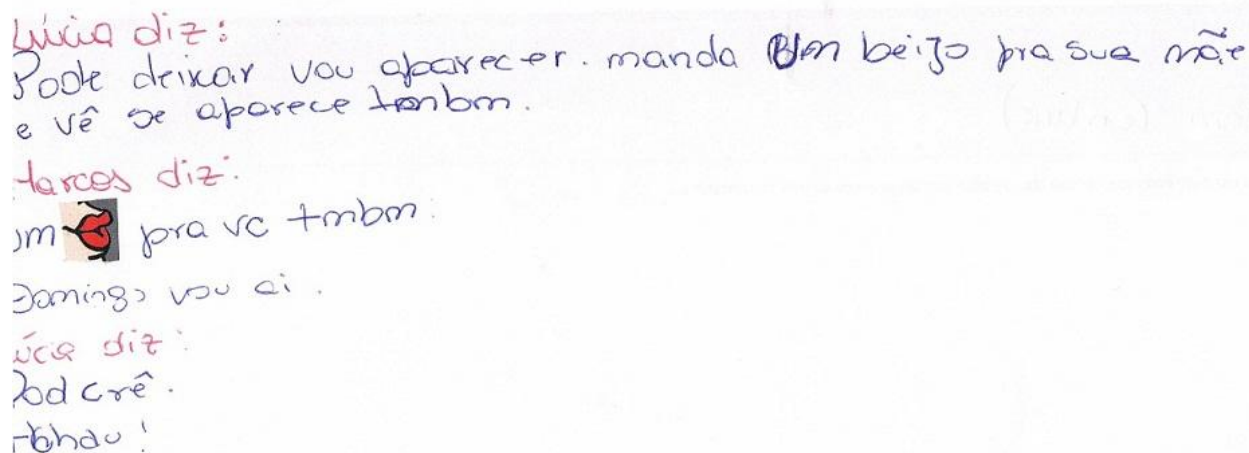 Lúcia diz:
Pode deixar vou aparecer. manda Um beijo pra sua mãe
e vê se aparece tmbm.
Marcos diz:
um pra vc tmbm.
Domingo vou ai.
Lúcia diz:
Pod crê.
Tchau!